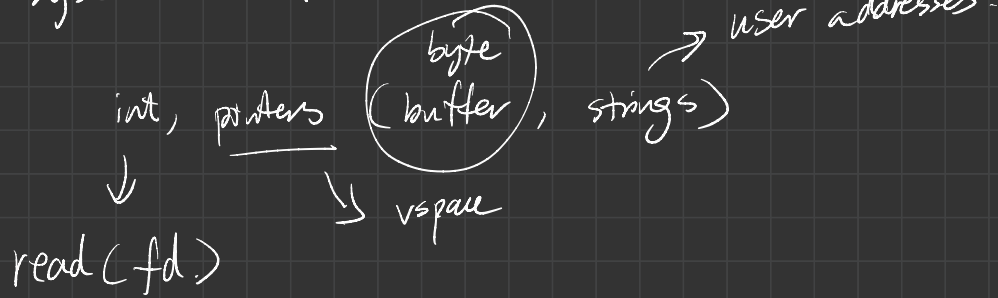 user addresses
byte
int, pointers (buffer, strings)
vspace
read(fd)